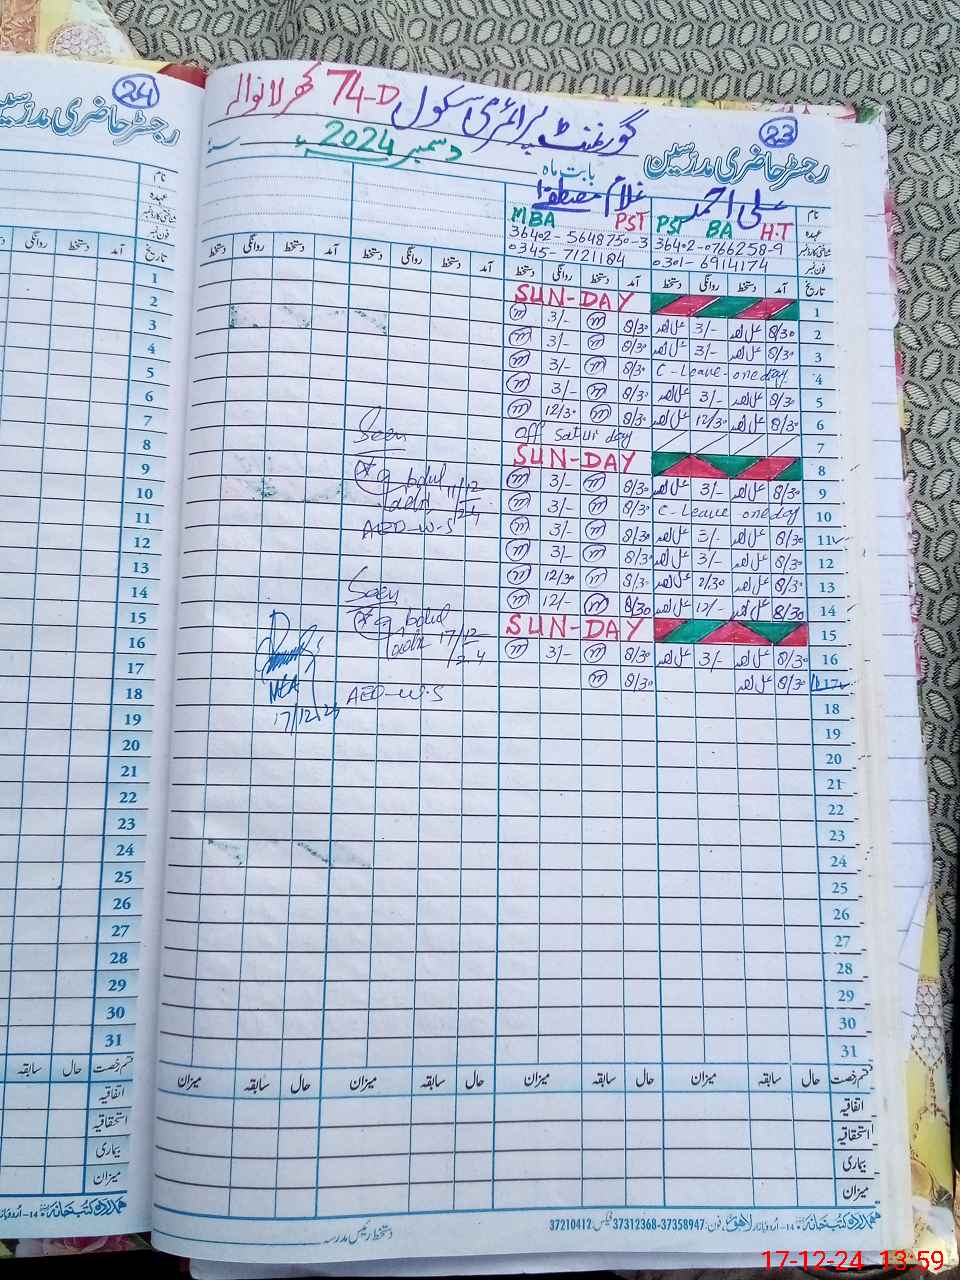 24
رجسٹر حاضری مدرسین
23
گورنمنٹ پرائمری سکول 74-D کھرلانوالہ
رجسٹر حاضری مدرسین
بابت ماہ دسمبر 2024 سنہ
نام علی احمد غلام مصطفےٰ
عہدہ PST BA H.T MBA PST
شناختی کارڈ نمبر 36402-0766258-9 36402-5648750-3
فون نمبر 0301-6914174 0345-7121184
تاریخ آمد دستخط روانگی دستخط آمد دستخط روانگی دستخط آمد دستخط دستخط آمد دستخط روانگی دستخط
1 SUN-DAY
2 8/30 علی احمد 3/- علی احمد 8/30 m 3/- m
3 8/30 علی احمد 3/- علی احمد 8/30 m 3/- m
4 C-Leave-one day 8/30 m 3/- m
5 8/30 علی احمد 3/- علی احمد 8/30 m 3/- m
6 8/30 علی احمد 12/30 علی احمد 8/30 m 12/30 m
7 off Satur day
8 SUN-DAY
9 8/30 علی احمد 3/- علی احمد 8/30 m 3/- m
10 C-Leave one day 8/30 m 3/- m
11 8/30 علی احمد 3/- علی احمد 8/30 m 3/- m
12 8/30 علی احمد 3/- علی احمد 8/30 m 3/- m
13 8/30 علی احمد علی احمد 8/30 m 12/30 m
14 8/30 علی احمد 12/- علی احمد 8/30 m 12/- m
15 SUN-DAY
16 8/30 علی احمد 3/- علی احمد 8/30 m 3/- m
17 8/30 علی احمد 8/30 m
18
19
20
21
22
23
24
25
26
27
28
29
30
31
Seen
11/12
24
AEO-W-S
Seen
17/12
24
AEO-W-S
MEA
17/12/24
قسم رخصت حال سابقہ میزان حال سابقہ میزان حال سابقہ میزان
اتفاقیہ
استحقاقیہ
بیماری
میزان
دستخط رئیس مدرسہ
ہمدرد کتب خانہ 14-اردو بازار لاہور فون: 37358947-37312368 فیکس: 37210412
تاریخ آمد دستخط روانگی دستخط
1
2
3
4
5
6
7
8
9
10
11
12
13
14
15
16
17
18
19
20
21
22
23
24
25
26
27
28
29
30
31
قسم رخصت حال سابقہ
اتفاقیہ
استحقاقیہ
بیماری
میزان
ہمدرد کتب خانہ 14-اردو بازار
17-12-24 13:59